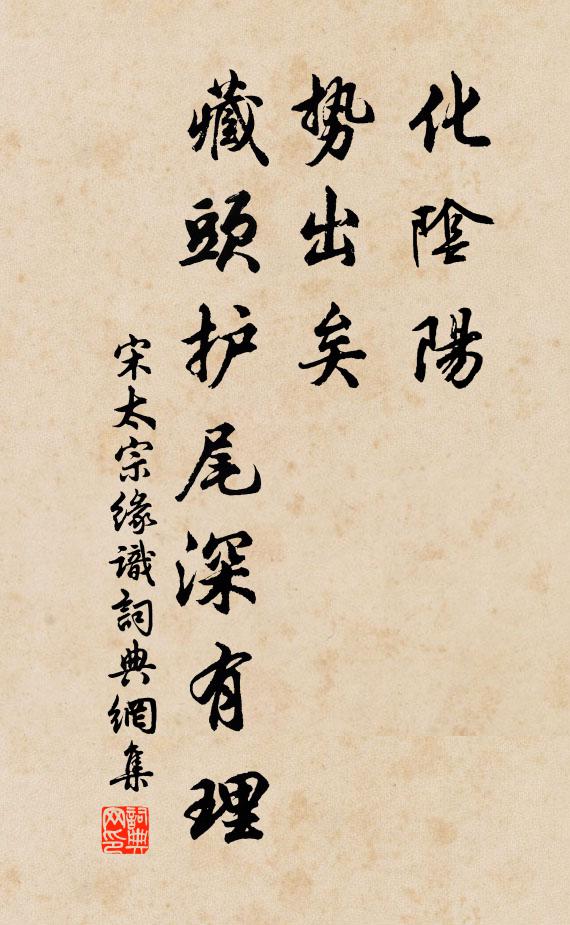 化陰陽
势出矣
藏頭护尾深有理
宋太宗缘識詞典網集
詞典网印